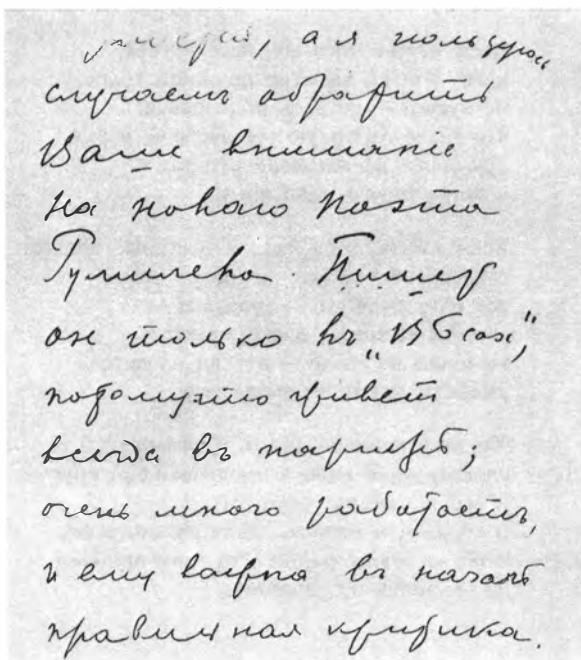 а я пользуюсь
случаемъ обратить
Ваше вниманіе
на новаго поэта
Гумилева. Пишетъ
он только въ "Вѣсах",
потому что живет
всегда въ Парижѣ;
очень много работаетъ,
и ему важна въ началѣ
правильная критика.